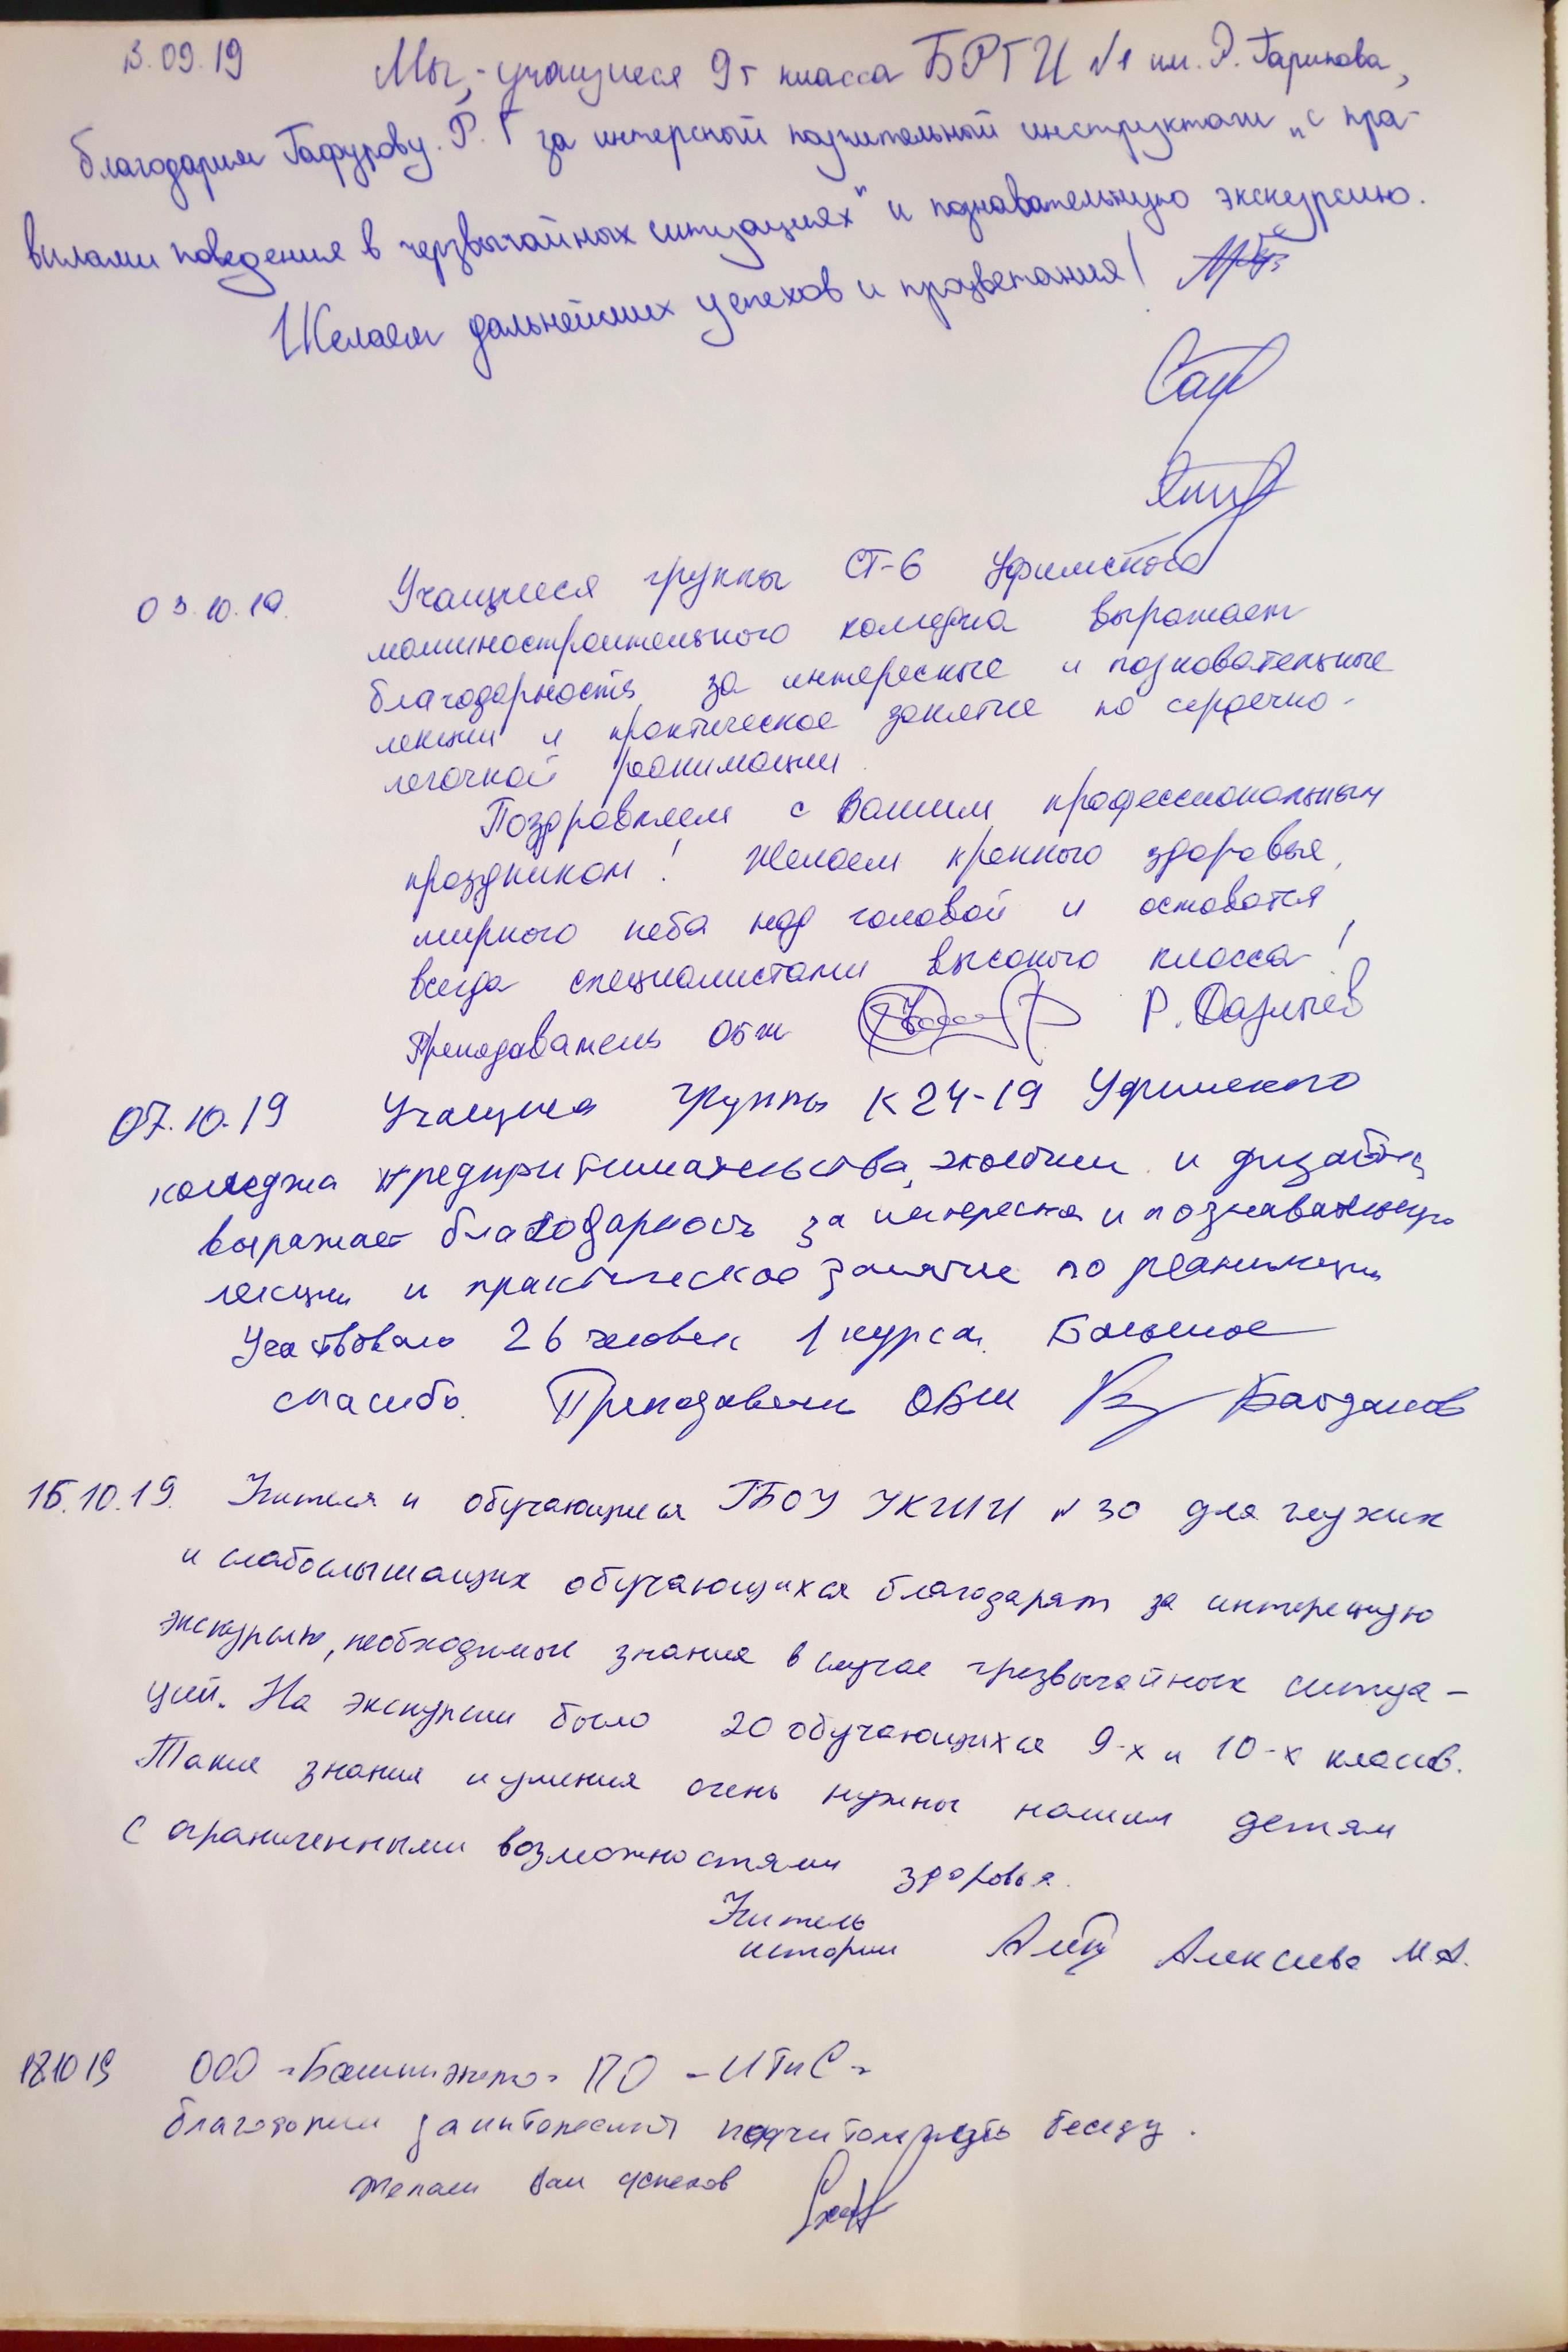 13.09.19 Мы, - учащиеся 9г класса БРГИ №1 им. Р. Гарипова,
благодарим Гафурову. Р. Г за интерсный поучительный инструктаж „с пра-
вилами поведения в черзвычайных ситуациях" и познавательную экскурсию.
Желаем дальнейших успехов и процветания!
03.10.19. Учащиеся группы СТ-6 Уфимского
машиностроительного колледжа выражает
благодарность за интересные и познавательные
лекции и практическое занятие по сердечно-
легочной реанимации.
Поздравляем с Вашим профессиональным
праздником! Желаем крепкого здоровья,
мирного неба над головой и оставатся
всегда специалистами высокого класса!
Преподаватель ОБЖ Р.
07.10.19 Учащиеся группы К24-19 Уфимского
колледжа предпринимательства, экологии и дизайна
выражает благодарность за интересная и познавательную
лекции и практическое занятие по реанимации
Участвовало 26 человек 1 курса. Большое
спасибо. Преподаватель ОБЖ Богданов
15.10.19. Учителя и обучающиеся ГБОУ УКШИ №30 для глухих
и слабослышащих обучающихся благодарят за интересную
экскурсию, необходимые знания в случае чрезвычайных ситуа-
ций. На экскурсии было 20 обучающихся 9-х и 10-х классов.
Такие знания и умения очень нужны нашим детям
с ограниченными возможностями здоровья.
Учитель
истории Алексеева М.А.
18.10.19 ООО ПО "ИТиС"
благодарим за интересную беседу.
Желаем Вам успехов